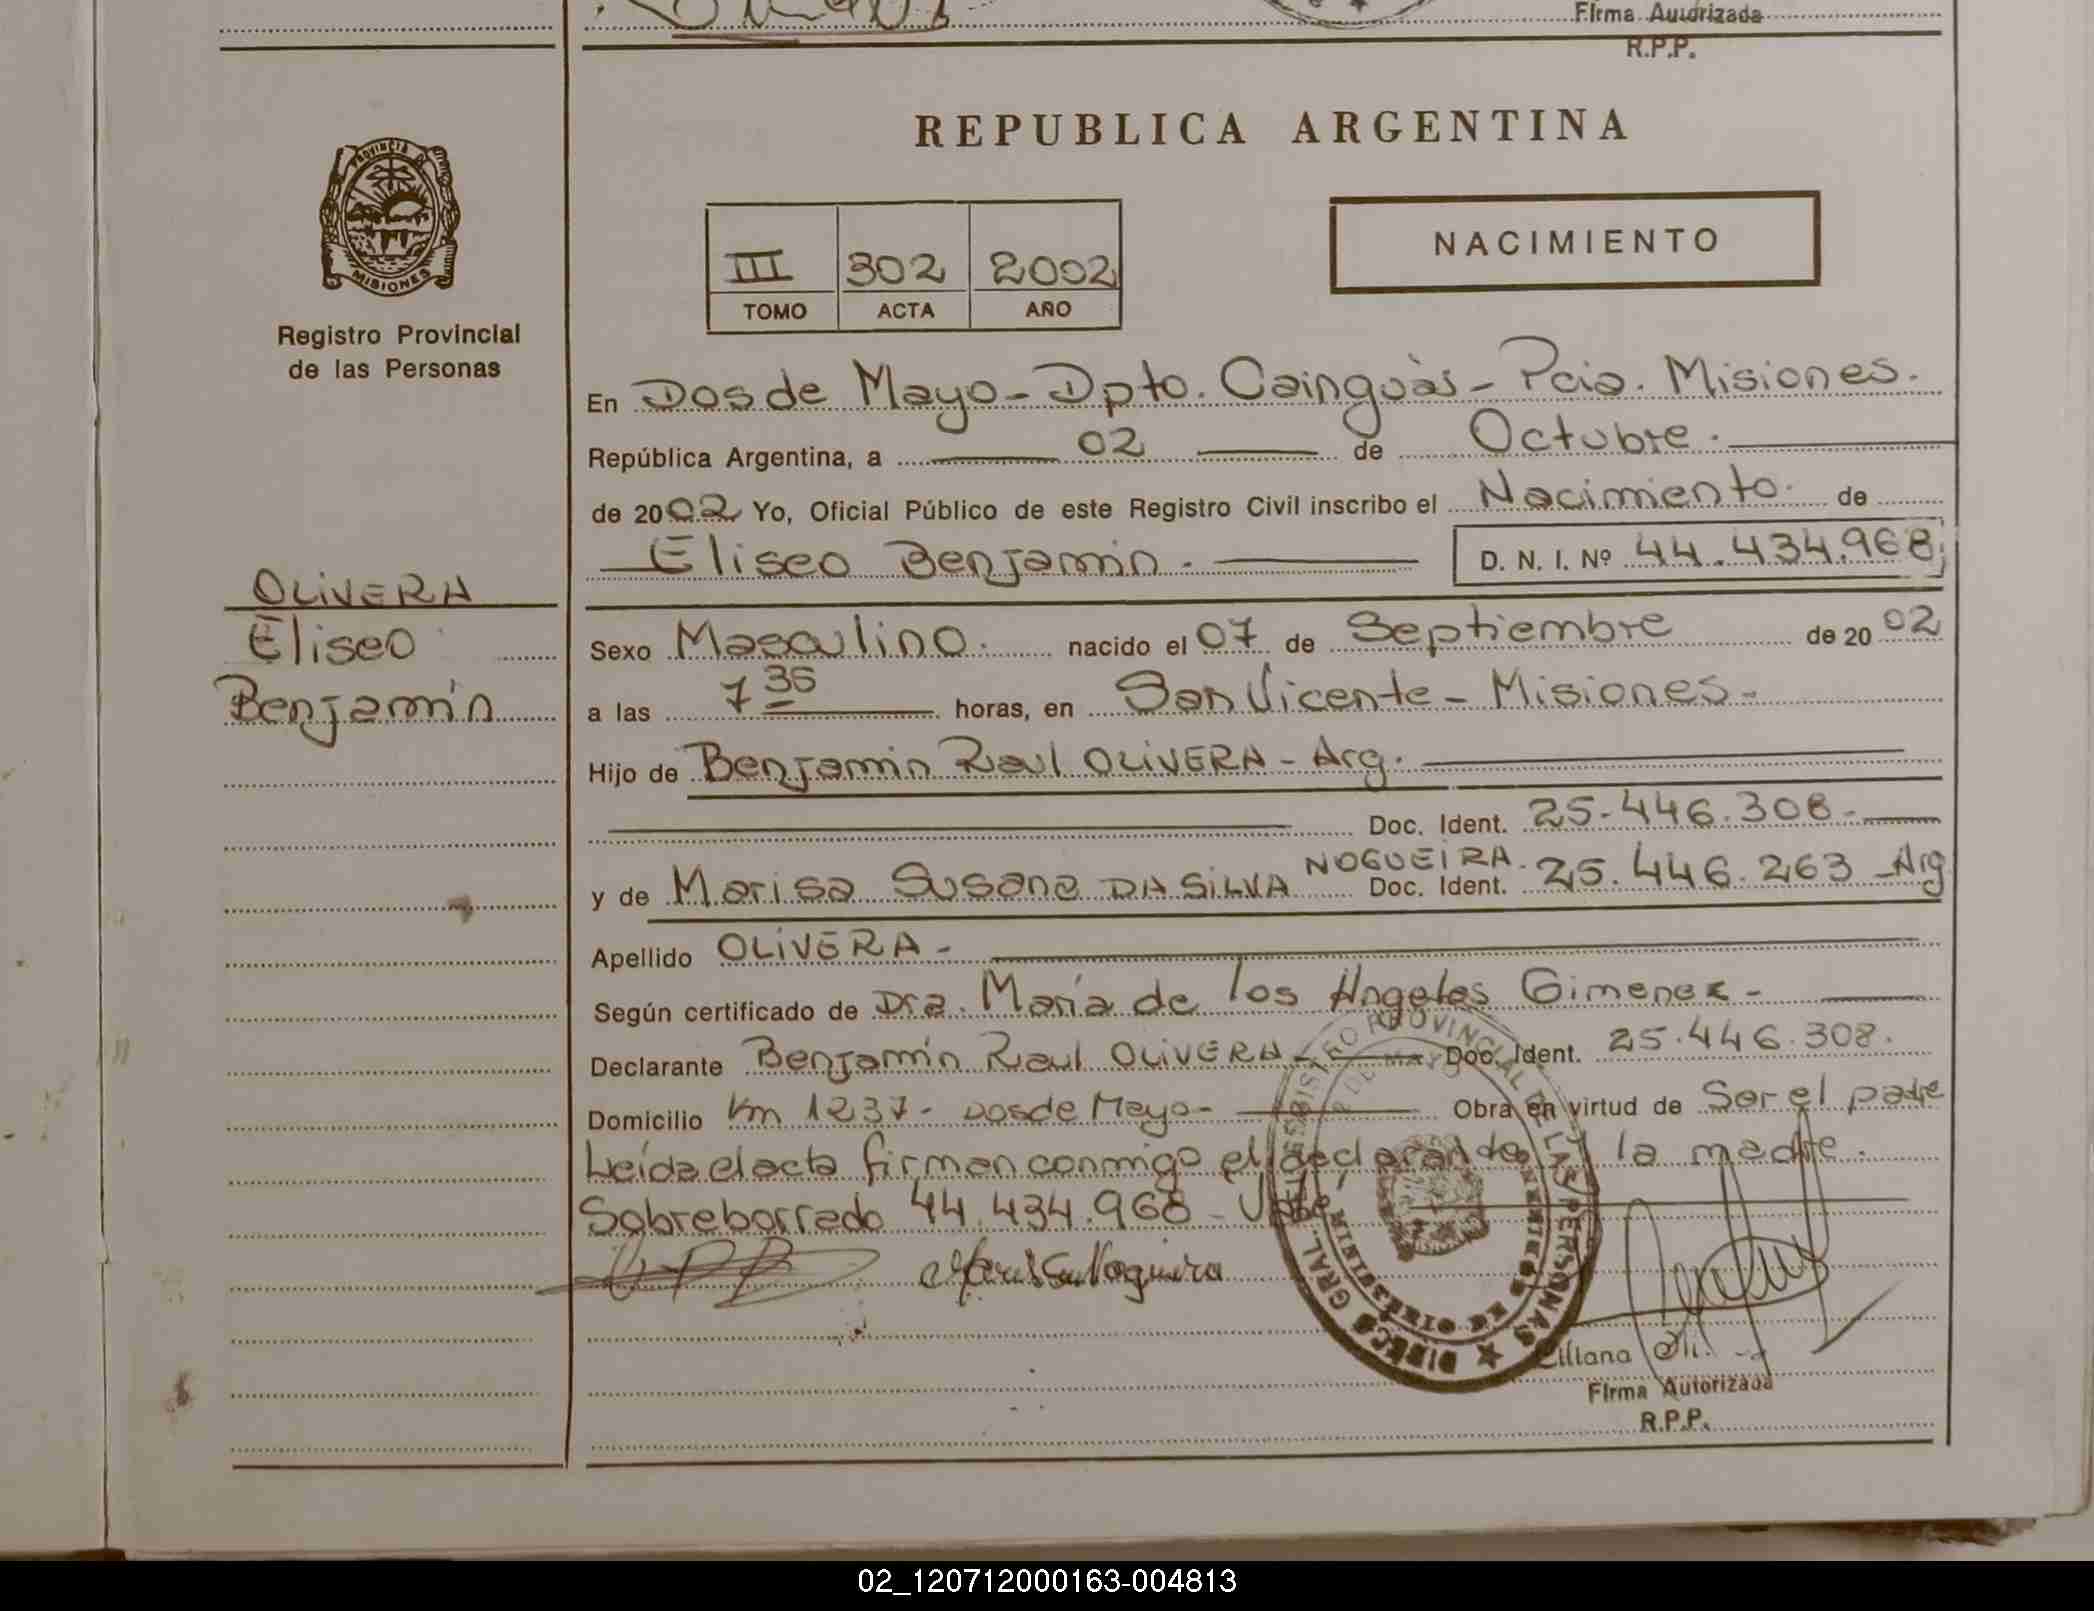 Firma Autorizada
R.P.P.
REPUBLICA ARGENTINA
PROVINCIA DE
MISIONES
Registro Provincial
de las Personas
III 302 2002
TOMO ACTA AÑO
NACIMIENTO
En Dos de Mayo - Dpto. Cainguàs - Pcia. Misiones.
República Argentina, a 02 de Octubre.
de 2002 Yo, Oficial Público de este Registro Civil inscribo el Nacimiento de
Eliseo Benjamín. D. N. I. Nº 44.434.968
OLIVERA
Eliseo
Benjamín
Sexo Masculino. nacido el 07 de Septiembre de 2002
a las 7 35 horas, en San Vicente - Misiones -
Hijo de Benjamín Raul OLIVERA - Arg.
Doc. Ident. 25.446.308.
y de Marisa Susana DA SILVA NOGUEIRA. Doc. Ident. 25.446.263 - Arg
Apellido OLIVERA -
Según certificado de Dra. María de los Angeles Gimenez -
Declarante Benjamín Raul OLIVERA - Doc. Ident. 25.446.308.
Domicilio Km 1237 - Dos de Mayo - Obra en virtud de Ser el padre
Leída el acta firman conmigo el declarande y la madre.
Sobreborrado 44.434.968 - Vale
REGISTRO PROVINCIAL DE LAS PERSONAS ★ DIRECC GRAL.
2 DE MAYO
Liliana
Firma Autorizada
R.P.P.
02_120712000163-004813